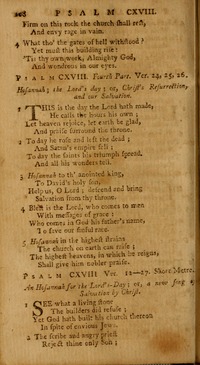 208 PSALM CXVIII.
Firm on this rock the church shall rest,
And envy rage in vain.
4 What tho' the gates of hell withstood?
Yet must this building rise:
'Tis thy own work, Almighty God,
And wondrous in our eyes.
PSALM CXVIII. Fourth Part. Ver. 24, 25, 26.
Hosannah; the Lord's day; or, Christ's Resurrection,
and our Salvation.
1 THIS is the day the Lord hath made,
He calls the hours his own;
Let heaven rejoice, let earth be glad,
And praise surround the throne.
2 To day he rose and left the dead;
And Satan's empire fell;
To day the saints his triumph spread,
And all his wonders tell.
3 Hosannah to th' anointed king,
To David's holy son,
Help us, O Lord; descend and bring
Salvation from thy throne.
4 Blest is the Lord, who comes to men
With messages of grace;
Who comes in God his father's name,
To save our sinful race.
5 Hosannah in the highest strains
The church on earth can raise;
The highest heavens, in which he reigns,
Shall give him nobler praise.
PSALM CXVIII Ver. 22—27. Short Metre.
An Hosannah for the Lord's-Day; or, a new song of
Salvation by Christ.
1 SEE what a living stone
The builders did refuse;
Yet God hath built his church thereon
In spite of envious Jews.
2 The scribe and angry priest
Reject thine only Son;